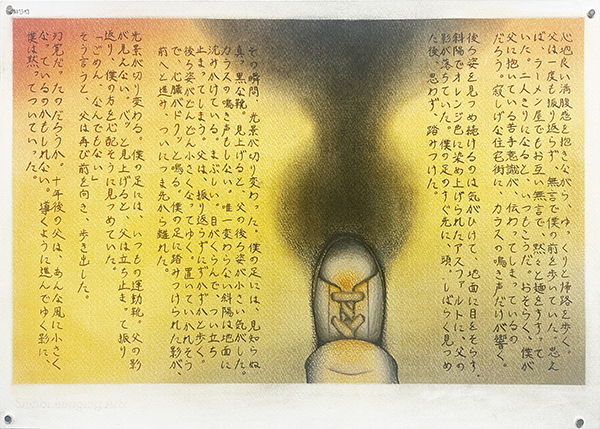 心地良い満腹感を抱きながら、ゆっくりと帰路を歩く。
父は一度も振り返らず、無言で僕の前を歩いていた。思え
ば、ラーメン屋でもお互い無言で、黙々と麺をすすって
いた。二人きりになると、いつもこうだ。おそらく、僕が
父に抱いている苦手意識が、伝わってしまっているの
だろう。寂しげな住宅街に、カラスの鳴き声だけが響く。
後ろ姿を見つめ続けるのは気がひけて、地面に目をそらす。
斜陽でオレンジ色に染め上げられたアスファルトに、父の
影が落ちていた。僕の足のすぐ先に、頭。しばらく見つめ
た後、思わず、踏みつけた。
その瞬間、光景が切り変わった。僕の足には、見知らぬ
真っ黒な靴。見上げると、父の後ろ姿が小さい気がした。
カラスの鳴き声もしない。唯一変わらない斜陽は地面に
沈みかけている。まぶしい。目がくらんで、つい立ち
止まってしまう。父は、振り返らずにずかずかと歩く。
後ろ姿がどんどん小さくなってゆく。置いていかれそう
で、心臓がドクッと鳴る。僕の足に踏みつけられた影が、
前へと進み、ついにつま先から離れた。
光景が切り変わる。僕の足には、いつもの運動靴。父の影
が見えない。パッと見上げると、父は立ち止まって振り
返り、僕の方を心配そうに見つめていた。
「ごめん、なんでもない」
そう言うと、父は再び前を向き、歩き出した。
幻覚だったのだろうか。十年後の父は、あんな風に小さく
なっているのかもしれない。導くように進んでゆく影に、
僕は黙ってついていった。